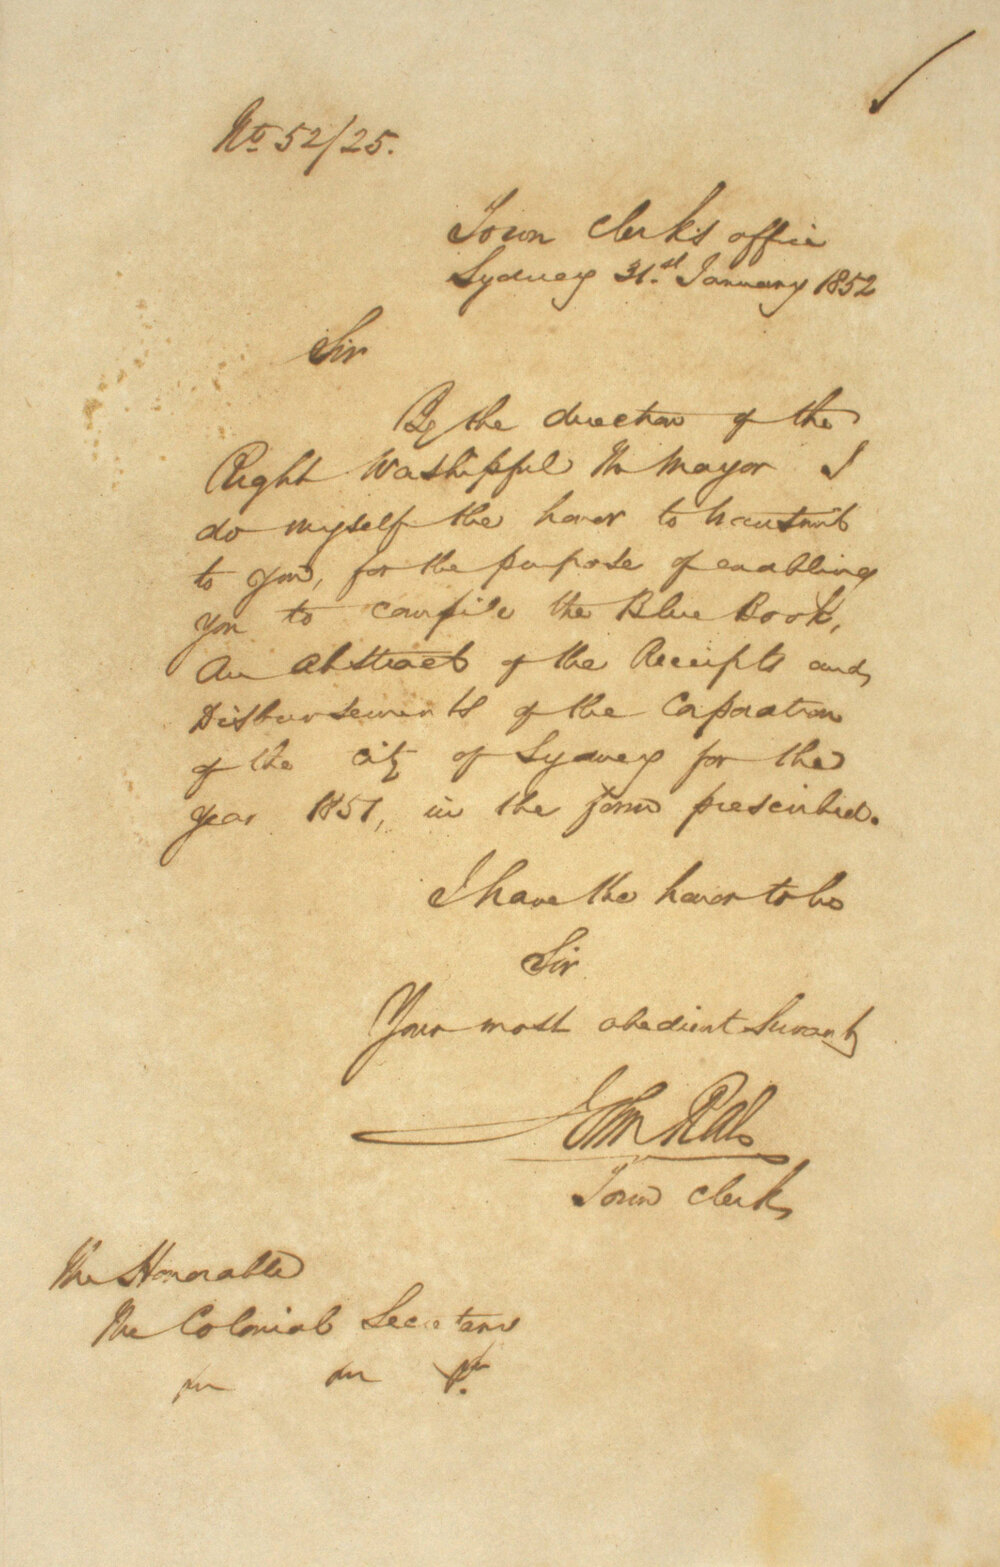 No 52/25.
Town Clerk's office
Sydney 31st January 1852
Sir
By the direction of the
Right Worshipful the Mayor I
do myself the honor to transmit
to you, for the purpose of enabling
you to compile the Blue Book,
an abstract of the Receipts and
Disbursements of the Corporation
of the City of Sydney for the
year 1851, in the form prescribed.
I have the honor to be
Sir
Your most obedient Servant
John Rae
Town Clerk
The Honorable
The Colonial Secretary